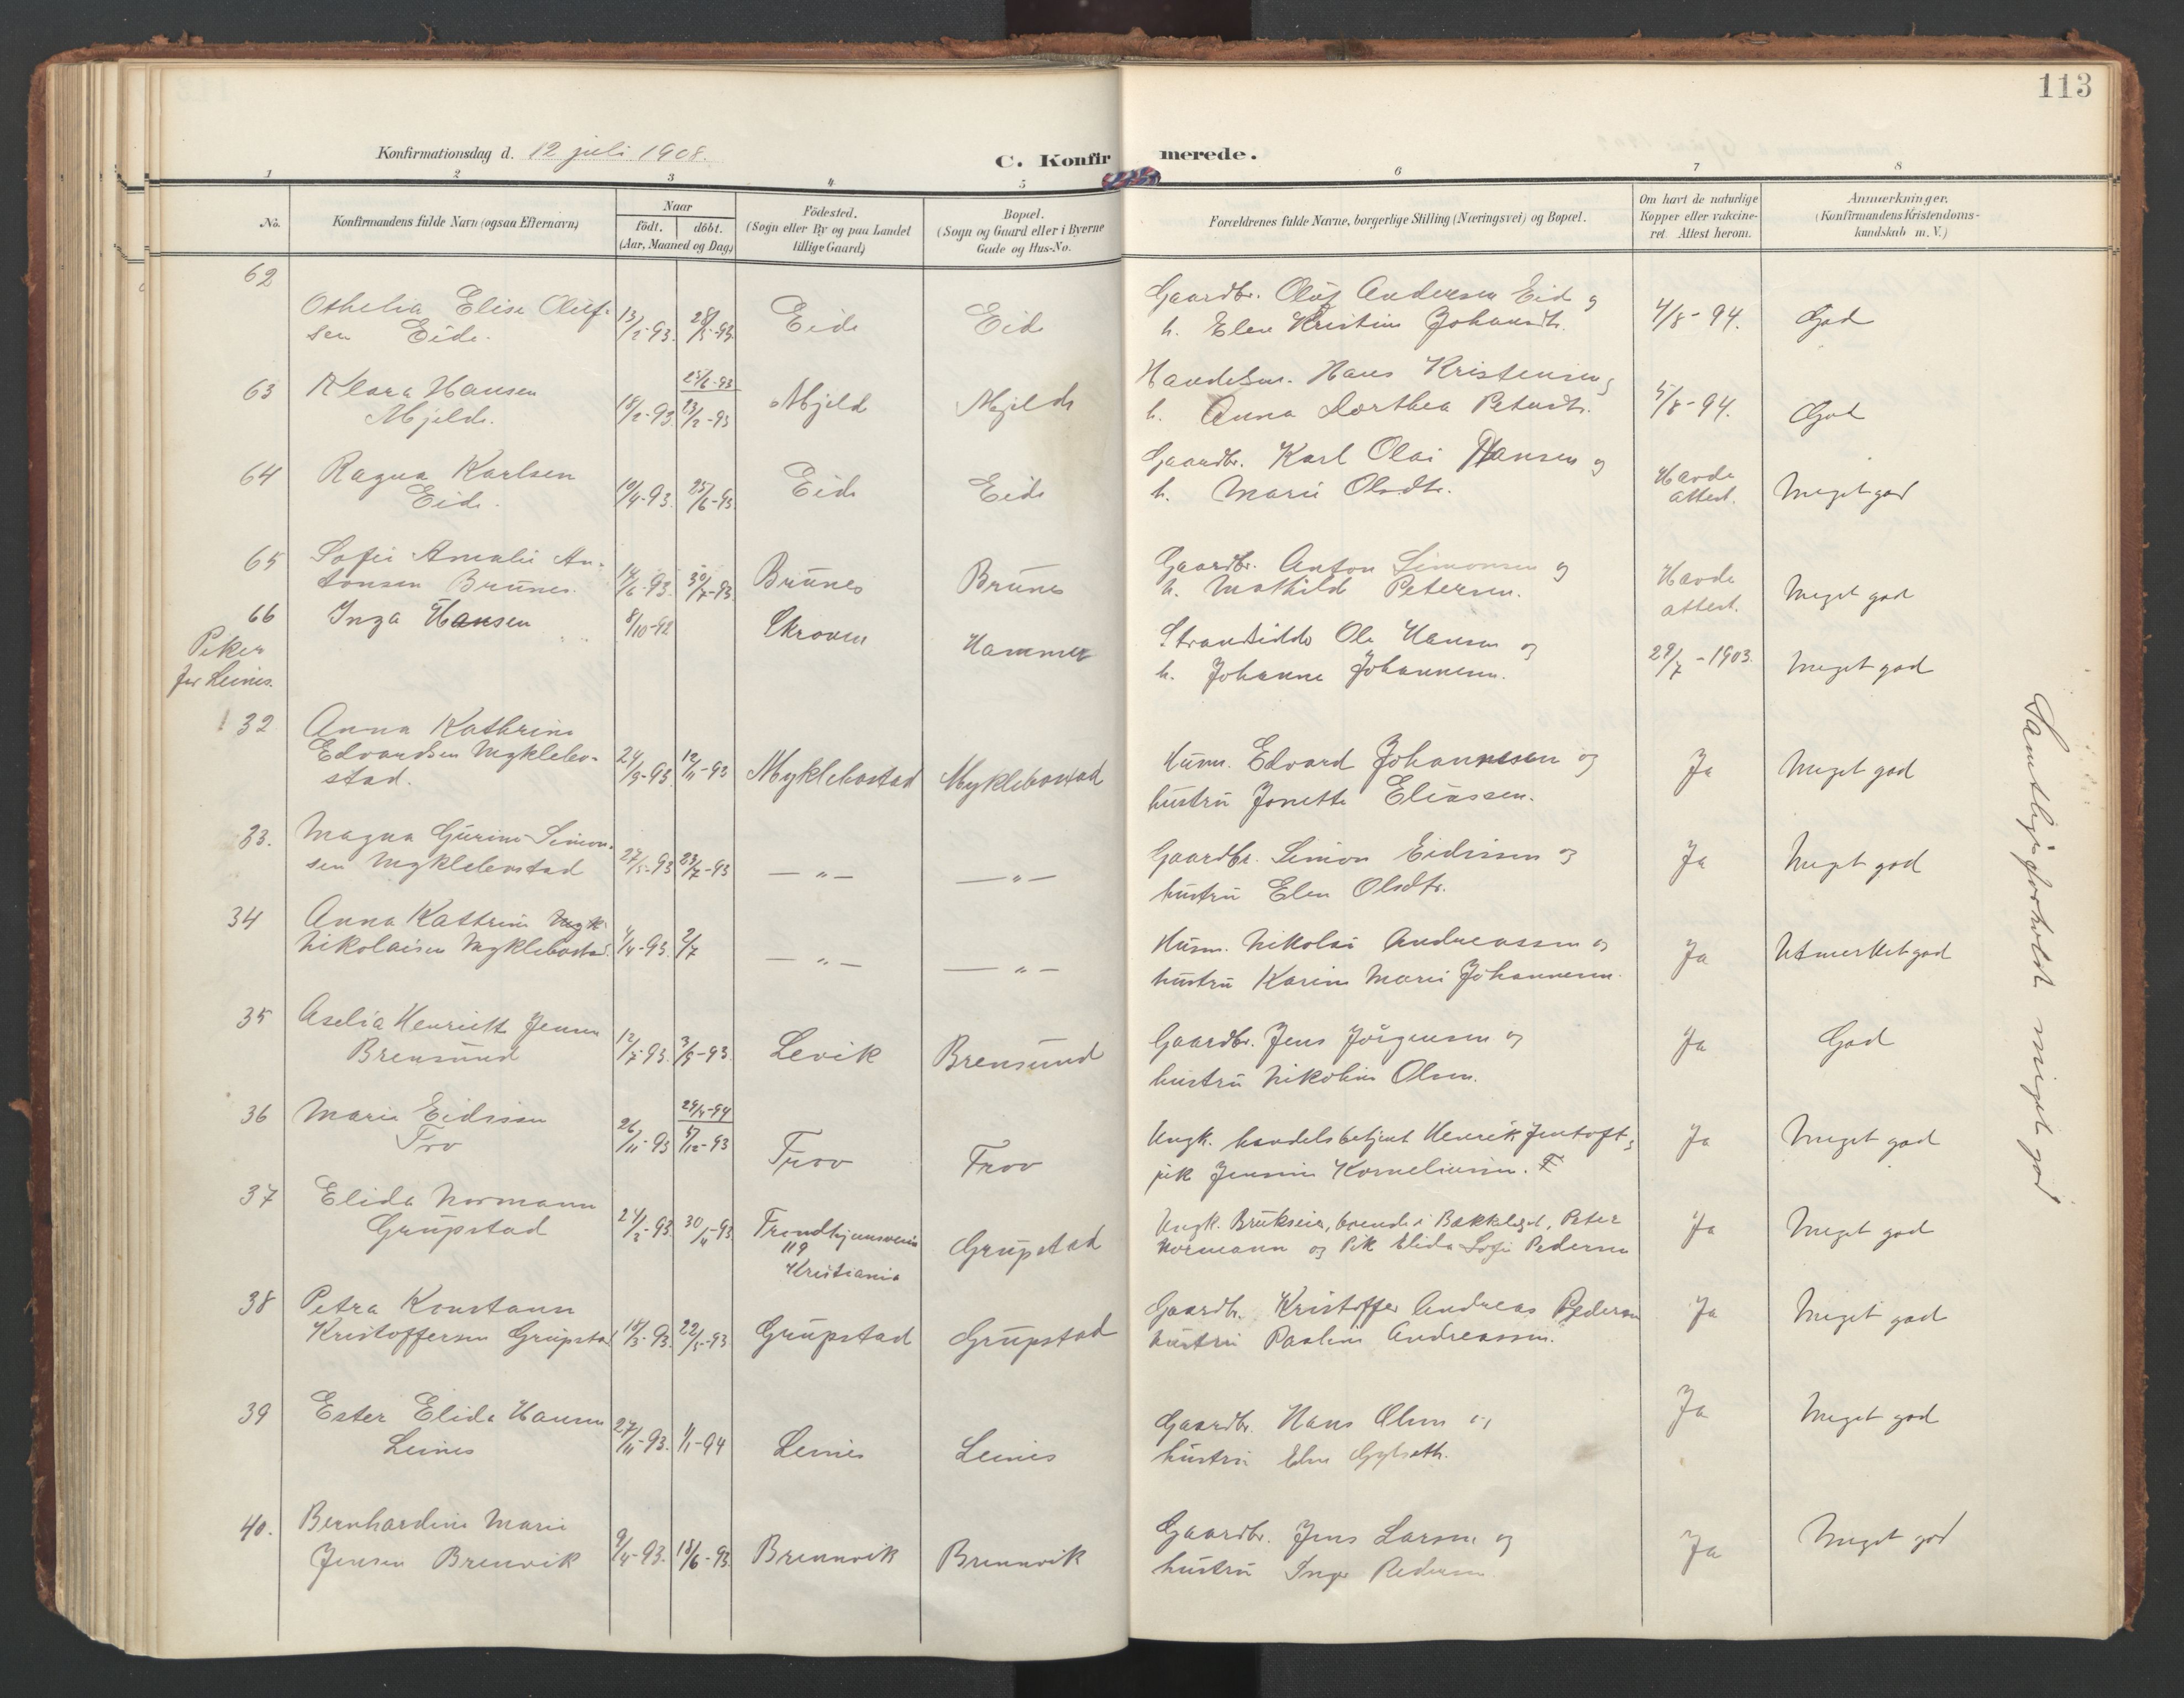 113
Konfirmationsdag d. 12 juli 1908.
C. Konfirmerede.
1 2 3 4 5 6 7 8
No.
Konfirmandens fulde Navn (ogsaa Efternavn)
Naar
födt. döbt.
(Aar, Maaned og Dag)
Födested.
(Sogn eller By og paa Landet
tillige Gaard)
Bopæl.
(Sogn og Gaard eller i Byerne
Gade og Hus-No.
Forældrenes fulde Navne, borgerlige Stilling (Næringsvei) og Bopæl.
Om havt de naturlige
Kopper eller vakcine-
ret. Attest herom.
Anmærkninger.
(Konfirmandens Kristendoms-
kundskab m. V.)
62
Othelia Elise Oluf-
sen Eide. 13/2-93. 28/5-93 Eide Eid
Gaardbr. Oluf Andersen Eid og
h. Elen Kristine Johansdtr. 4/8-94. God
63 Klara Hansen 25/6-93
Mjelde. 18/2-93 23/2-93 Mjeld Mjelde
Handelsm. Hans Kristensen og
h. Anna Dorthea Petersdtr. 5/8-94. God
64 Ragna Karlsen
Eide. 10/4-93. 25/6-93. Eide Eide
Gaardbr. Karl Olai Hansen og
h. Marie Olsdtr. Havde
attest. Meget god
65 Sofie Amalie An-
tonsen Brunes. 14/6-93. 30/7-93. Brunes Brunes
Gaardbr. Anton Simonsen og
h. Mathilde Petersen. Havde
attest. Meget god
66 Inga Hansen 8/10-92 Skroven Hammer
Strandsidder Ole Hansen og
h. Johanne Johannesen. 29/7-1903. Meget god
Piker
for Leines.
32 Anna Kathrine
Edvardsen Myklebo-
stad. 24/9-93. 12/11-93 Myklebostad Myklebostad
Husm. Edvard Johannesen og
hustru Jonette Eliassen. Ja Meget god
33. Magna Gurine Simon-
sen Myklebostad 27/5-93 23/7-93 — " — — " —
Gaardbr. Simon Eidissen og
hustru Elen Olsdtr. Ja Meget god
34 Anna Kattrine Myk
Nikolaisen Myklebostad. 4/4-93. 2/7 — " — — " —
Husm. Nikolai Andreassen og
hustru Karine Marie Johannesen. Ja Utmerket god
35 Aselia Henriette Jensen
Brensund 12/7-93. 3/9-93. Levik Brensund
Gaardbr. Jens Jörgensen og
hustru Nikoline Olsen. Ja God
36 Marie Eidissen 29/4-94
Trov 26/11-93 17/12-93 Trov Trov
Ungk. handelsbetjent Henrik Jentoft og
pik Jensine Korneliussen. Ja Meget god
37 Elida Normann
Grupstad 24/2-93. 30/4-93 Trondhjemsveien
119
Kristiania Grupstad
Ungk. Brukseier, boende i Bakkelaget, Peter
Normann og Pik Elida Sofie Pedersen Ja Meget god
38 Petra Konstanse
Kristoffersen Grupstad 18/3-93. 22/5-93 Grupstad Grupstad
Gaardbr. Kristoffer Andreas Pedersen
hustru Pauline Andreassen. Ja Meget god
39 Ester Elida Hansen
Leines 27/11-93. 1/1-94 Leines Leines
Gaardbr. Hans Olsen og
hustru Elen Gylseth. Ja Meget god
40. Bernhardine Marie
Jensen Brenvik 9/4-93. 18/6-93. Brennvik Brennvik
Gaardbr. Jens Larsen og
hustru Inger Pedersen Ja Meget god
Samtlige forholdt meget god